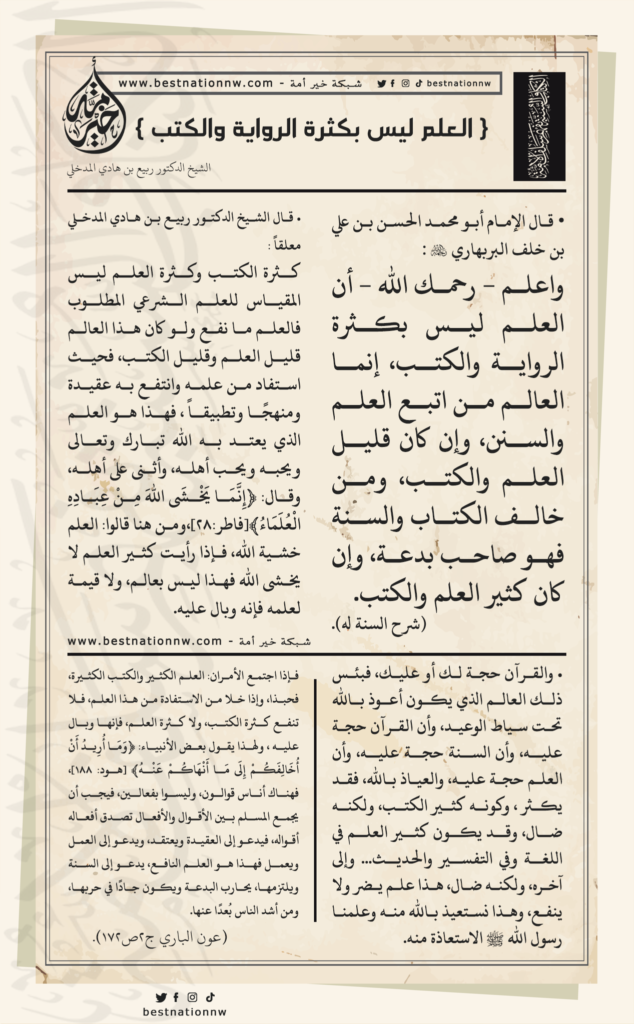 www.bestnationnw.com - شبكة خير أمة
bestnationnw
خير أمة
{ العلم ليس بكثرة الرواية والكتب }
الشيخ الدكتور ربيع بن هادي المدخلي
• قال الإمام أبو محمد الحسن بن علي
بن خلف البربهاري ﵀ :
واعلم – رحمك الله – أن
العلم ليس بكثرة
الرواية والكتب، إنما
العالم من اتبع العلم
والسنن، وإن كان قليل
العلم والكتب، ومن
خالف الكتاب والسنة
فهو صاحب بدعة، وإن
كان كثير العلم والكتب.
(شرح السنة له).
• قال الشيخ الدكتور ربيع بن هادي المدخلي
معلقاً :
كثرة الكتب وكثرة العلم ليس
المقياس للعلم الشرعي المطلوب
فالعلم ما نفع ولو كان هذا العالم
قليل العلم وقليل الكتب، فحيث
استفاد من علمه وانتفع به عقيدة
ومنهجًا وتطبيقاً ، فهذا هو العلم
الذي يعتد به الله تبارك وتعالى
ويحبه ويحب أهله، وأثنى على أهله،
وقال: ﴿إِنَّمَا يَخْشَى اللهَ مِنْ عِبَادِهِ
الْعُلَمَاءُ﴾[فاطر:٢٨]،ومن هنا قالوا: العلم
خشية الله، فإذا رأيت كثير العلم لا
يخشى الله فهذا ليس بعالم، ولا قيمة
لعلمه فإنه وبال عليه.
www.bestnationnw.com - شبكة خير أمة
• والقرآن حجة لك أو عليك، فبئس
ذلك العالم الذي يكون أعوذ بالله
تحت سياط الوعيد، وأن القرآن حجة
عليه، وأن السنة حجة عليه، وأن
العلم حجة عليه، والعياذ بالله، فقد
يكثر ، وكونه كثير الكتب، ولكنه
ضال، وقد يكون كثير العلم في
اللغة وفي التفسير والحديث... وإلى
آخره، ولكنه ضال، هذا علم يضر ولا
ينفع، وهذا نستعيذ بالله منه وعلمنا
رسول الله ﷺ الاستعاذة منه.
فإذا اجتمع الأمران: العلم الكثير والكتب الكثيرة،
فحبذا، وإذا خلا من الاستفادة من هذا العلم، فلا
تنفع كثرة الكتب، ولا كثرة العلم، فإنها وبال
عليه ، ولهذا يقول بعض الأنبياء: ﴿وَمَا أُرِيدُ أَنْ
أُخَالِفَكُمْ إِلَى مَا أَنْهَاكُمْ عَنْهُ﴾ [هود: ١٨٨]،
فهناك أناس قوالون، وليسوا بفعالين، فيجب أن
يجمع المسلم بين الأقوال والأفعال تصدق أفعاله
أقواله، فيدعو إلى العقيدة ويعتقد، ويدعو إلى العمل
ويعمل فهذا هو العلم النافع، يدعو إلى السنة
ويلتزمها، يحارب البدعة ويكون جادًا في حربها،
ومن أشد الناس بُعدًا عنها.
(عون الباري ج٢ص١٧٢).
bestnationnw